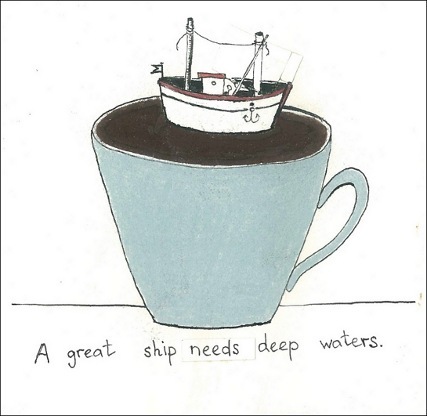 A great ship needs deep waters.